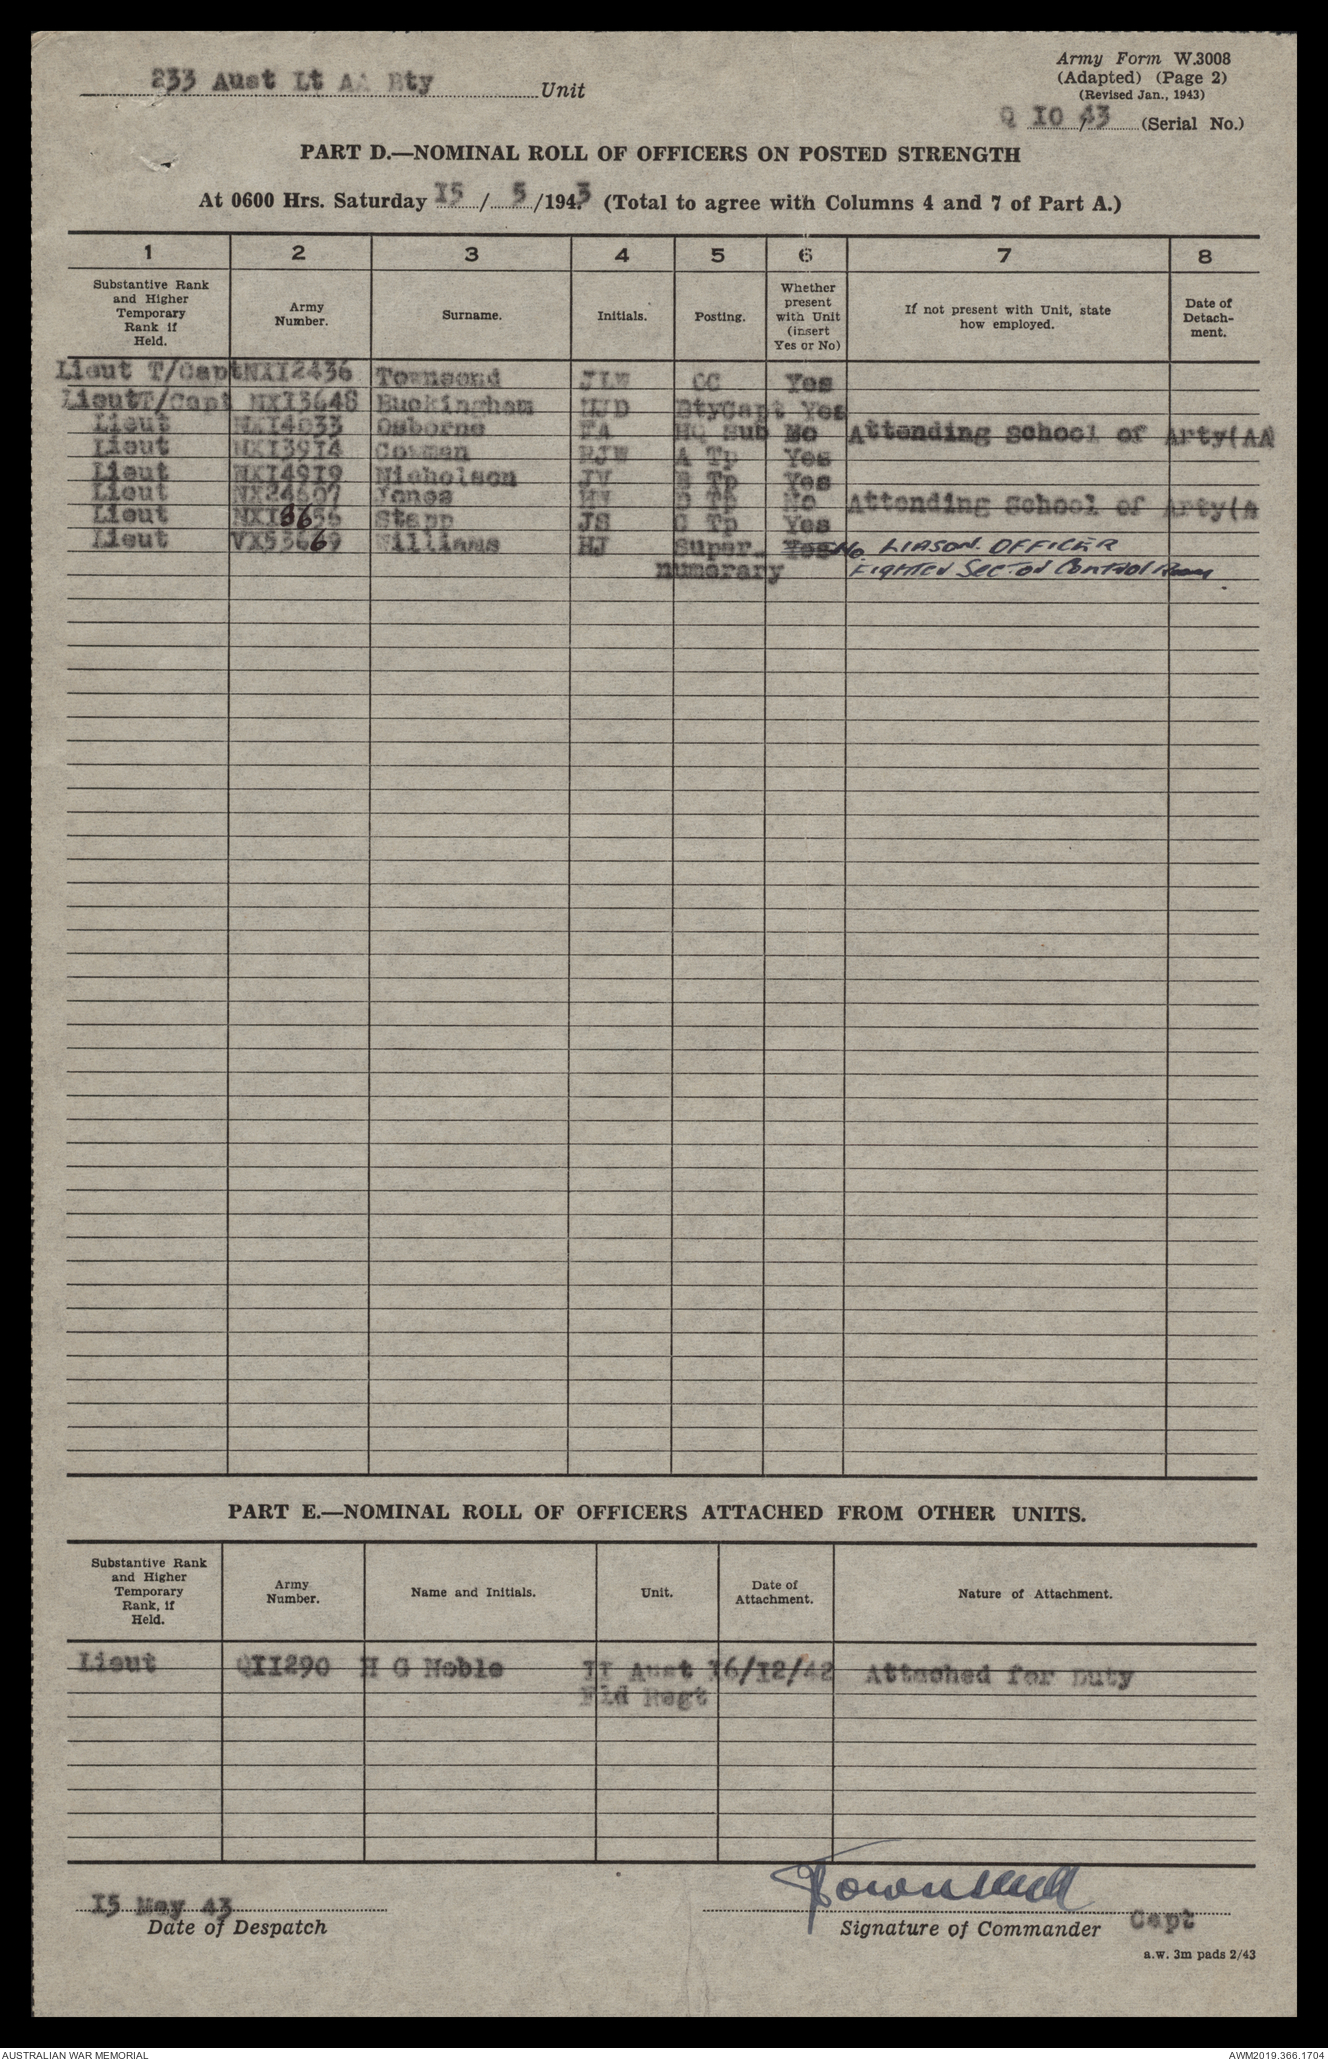 233 Aust Lt AA Bty Unit
Army Form W.3008
(Adapted) (Page 2)
(Revised Jan., 1943)
Q IO/43 (Serial No.)
PART D.—NOMINAL ROLL OF OFFICERS ON POSTED STRENGTH
At 0600 Hrs. Saturday I5/5/1943 (Total to agree with Columns 4 and 7 of Part A.)
1 2 3 4 5 6 7 8
Substantive Rank and Higher Temporary Rank if Held. Army Number. Surname. Initials. Posting. Whether present with Unit (insert Yes or No) If not present with Unit, state how employed. Date of Detach-ment.
Lieut T/Capt NXI2436 Townsend JLW OC Yes
LieutT/Capt NXI3648 Buckingham HJD BtyCapt Yes
Lieut NXI4033 Osborne FA HQ Sub No Attending School of Arty(AA
Lieut NXI39I4 Cowman RJW A Tp Yes
Lieut NXI49I9 Nicholson JV B Tp Yes
Lieut NX24607 Jones D Tp No Attending School of Arty(A
Lieut NXI8656 Stapp JS C Tp Yes
Lieut VX53669 Williams HJ Super- Yes No LIASON OFFICER
numerary FIGHTER SECTOR CONTROL Room.
PART E.—NOMINAL ROLL OF OFFICERS ATTACHED FROM OTHER UNITS.
Substantive Rank and Higher Temporary Rank, if Held. Army Number. Name and Initials. Unit. Date of Attachment. Nature of Attachment.
Lieut QII290 H G Noble II Aust I6/I2/42 Attached for Duty
Fld Regt
I5 May 43
Date of Despatch
JTownsend
Signature of Commander Capt
a.w. 3m pads 2/43
AUSTRALIAN WAR MEMORIAL AWM2019.366.1704